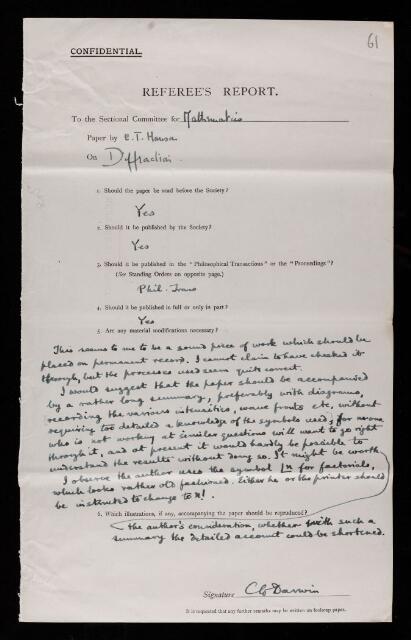 61
CONFIDENTIAL.
REFEREE'S REPORT.
To the Sectional Committee for Mathematics
Paper by E. T. Hanson
On Diffraction.
1. Should the paper be read before the Society?
Yes
2. Should it be published by the Society?
Yes
3. Should it be published in the "Philosophical Transactions" or the "Proceedings"?
(See Standing Orders on opposite page.)
Phil. Trans
4. Should it be published in full or only in part?
Yes
5. Are any material modifications necessary?
This seems to me to be a sound piece of work which should be
placed on permanent record. I cannot claim to have checked it
through, but the processes used seem quite correct.
I would suggest that the paper should be accompanied
by a rather long summary, preferably with diagrams,
recording the various intensities, wave fronts etc, without
requiring too detailed a knowledge of the symbols used; for no one
who is not working at similar questions will want to go right
through it, and at present it would hardly be possible to
understand the results without doing so. It might be worth
I observe the author uses the symbol |n for factorials,
which looks rather old fashioned. Either he or the printer should
be instructed to change to n!.
6. Which illustrations, if any, accompanying the paper should be reproduced?
the author's consideration, whether with such a
summary the detailed account could be shortened.
Signature C G Darwin
It is requested that any further remarks may be written on foolscap paper.